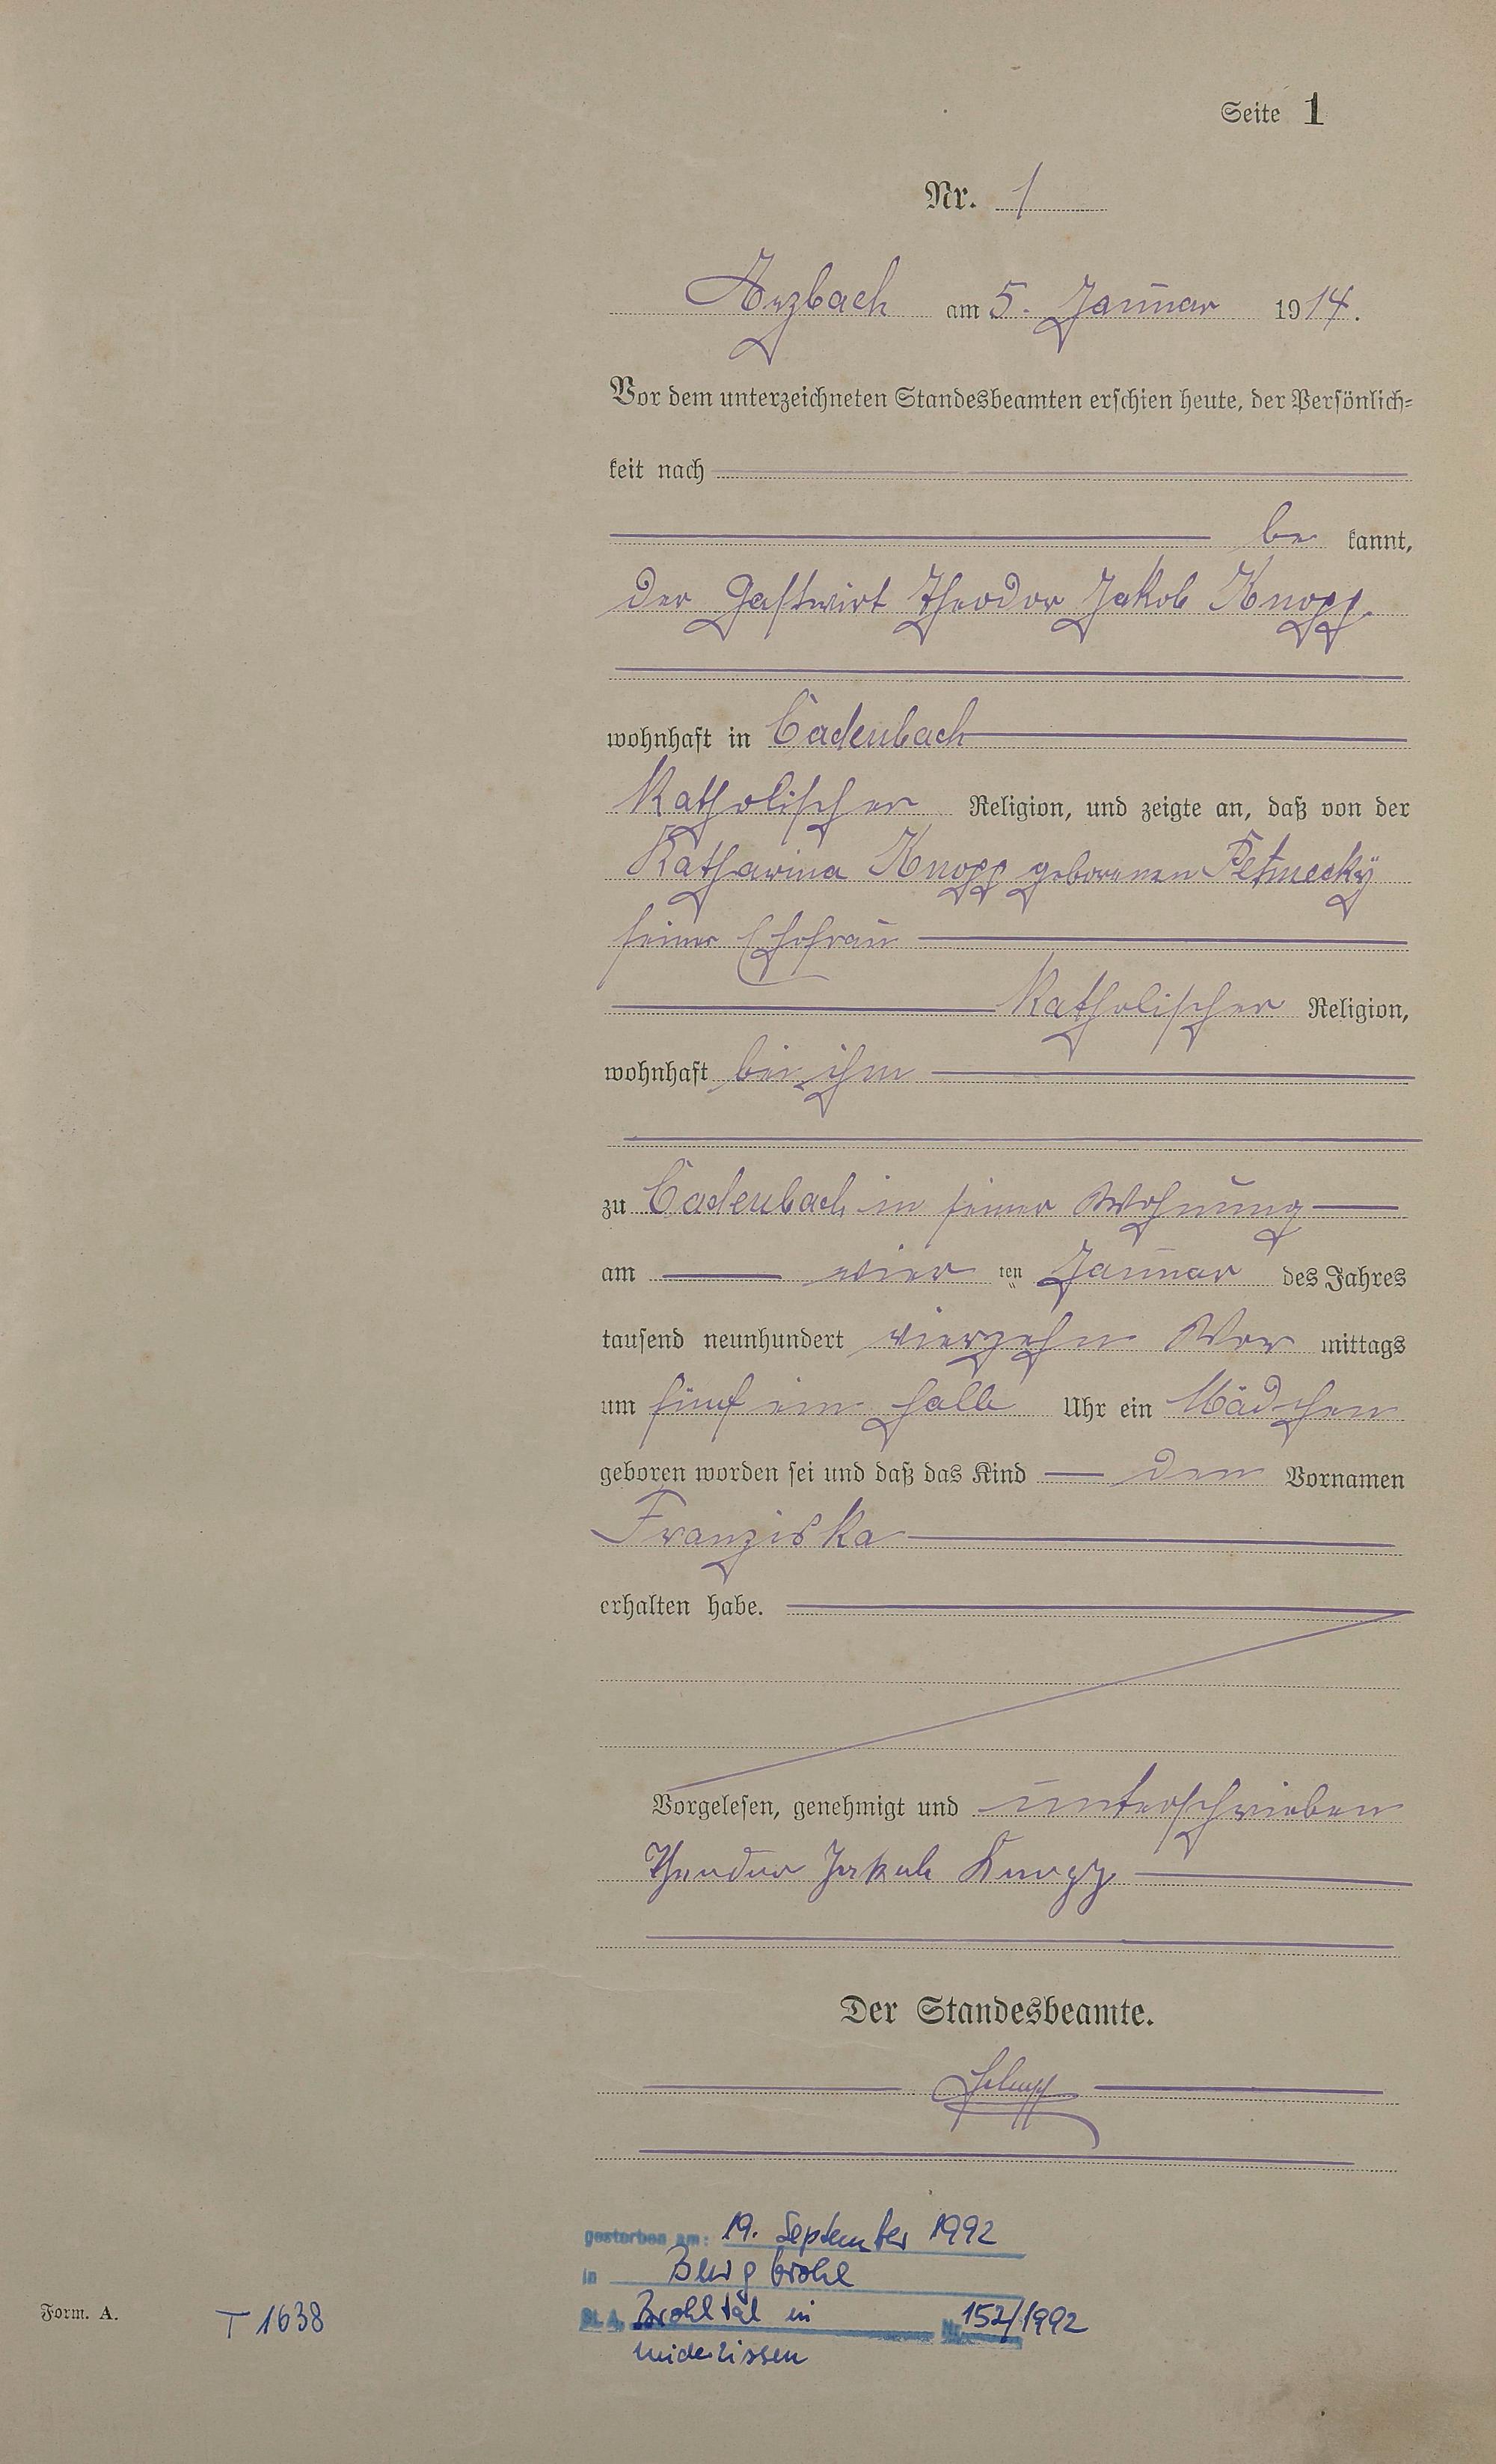 Seite 1
Nr. 1
Arzbach am 5. Januar 1914.
Vor dem unterzeichneten Standesbeamten erschien heute, der Persönlich-
keit nach
be kannt,
der Gastwirt Theodor Jakob Knopp
wohnhaft in Cadenbach
katholischer Religion, und zeigte an, daß von der
Katharina Knopp geborenen Petmecky
seiner Ehefrau
katholischer Religion,
wohnhaft bei ihm
zu Cadenbach in seiner Wohnung
am vier ten Januar des Jahres
tausend neunhundert vierzehn Vor mittags
um fünf ein halb Uhr ein Mädchen
geboren worden sei und daß das Kind den Vornamen
Franziska
erhalten habe.
Vorgelesen, genehmigt und unterschrieben
Theodor Jakob Knopp
Der Standesbeamte.
gestorben am: 19. September 1992
in Burgbrohl
St. A. Brohltal in Nr. 152/1992
Niederzissen
Form. A. T 1638